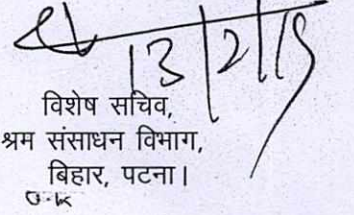 13/2/19
विशेष सचिव,
श्रम संसाधन विभाग,
बिहार, पटना।